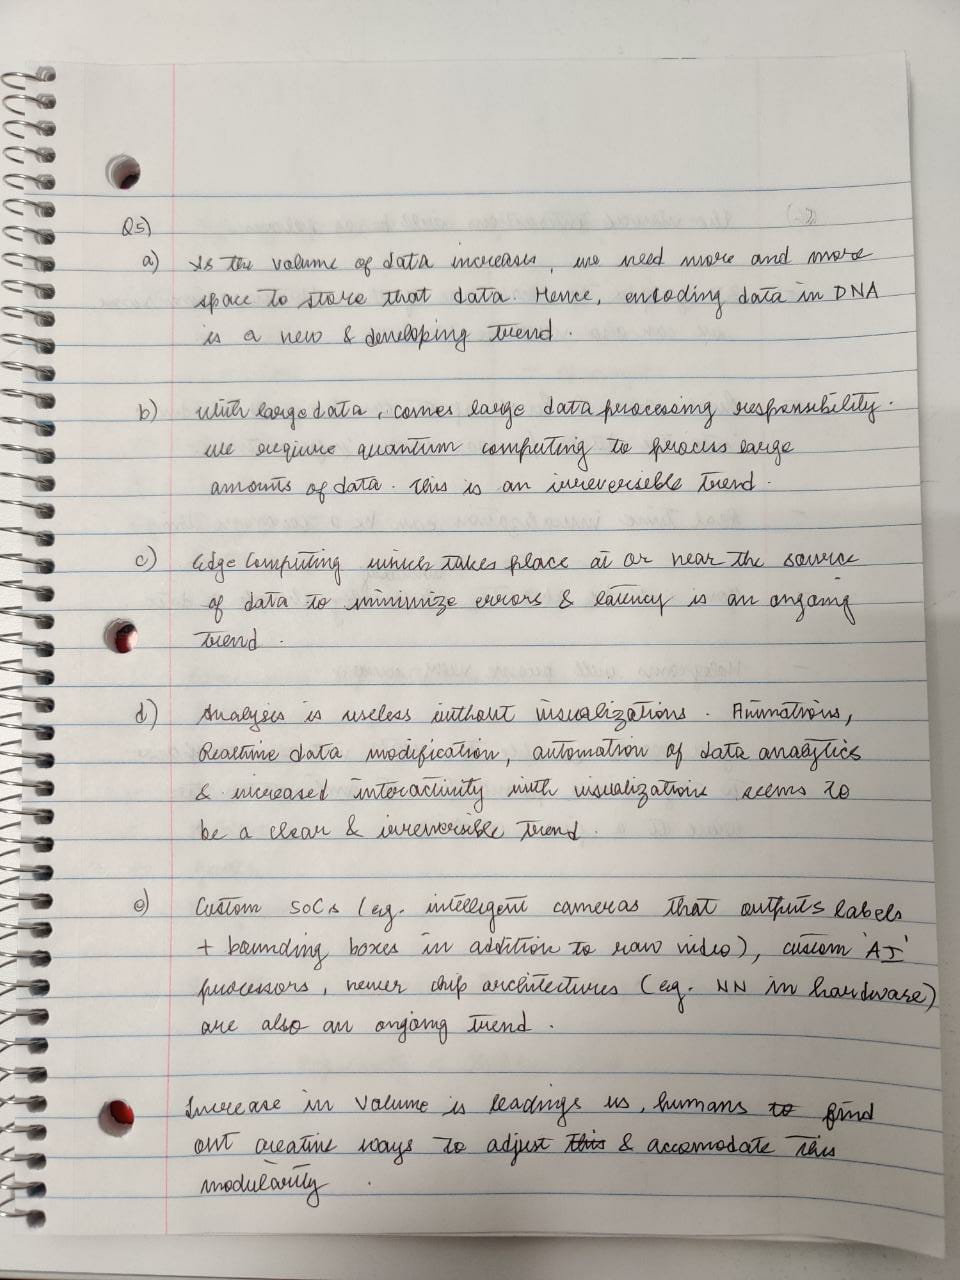 Q5)
a) As the volume of data increases, we need more and more
space to store that data. Hence, encoding data in DNA
is a new & developing trend.
b) With large data, comes large data processing responsibility.
We require quantum computing to process large
amounts of data. This is an irreversible trend.
c) Edge Computing which takes place at or near the source
of data to minimize errors & latency is an ongoing
trend.
d) Analysis is useless without visualizations. Animations,
Realtime data modification, automation of data analytics
& increased interactivity with visualizations seems to
be a clear & irreversible trend.
e) Custom SoCs (eg. intelligent cameras that outputs labels
+ bounding boxes in addition to raw video), custom 'AI'
processors, newer chip architectures (eg. NN in hardware)
are also an ongoing trend.
Increase in volume is leadings us, humans to find
out creative ways to adjust this & accomodate this
modularity.